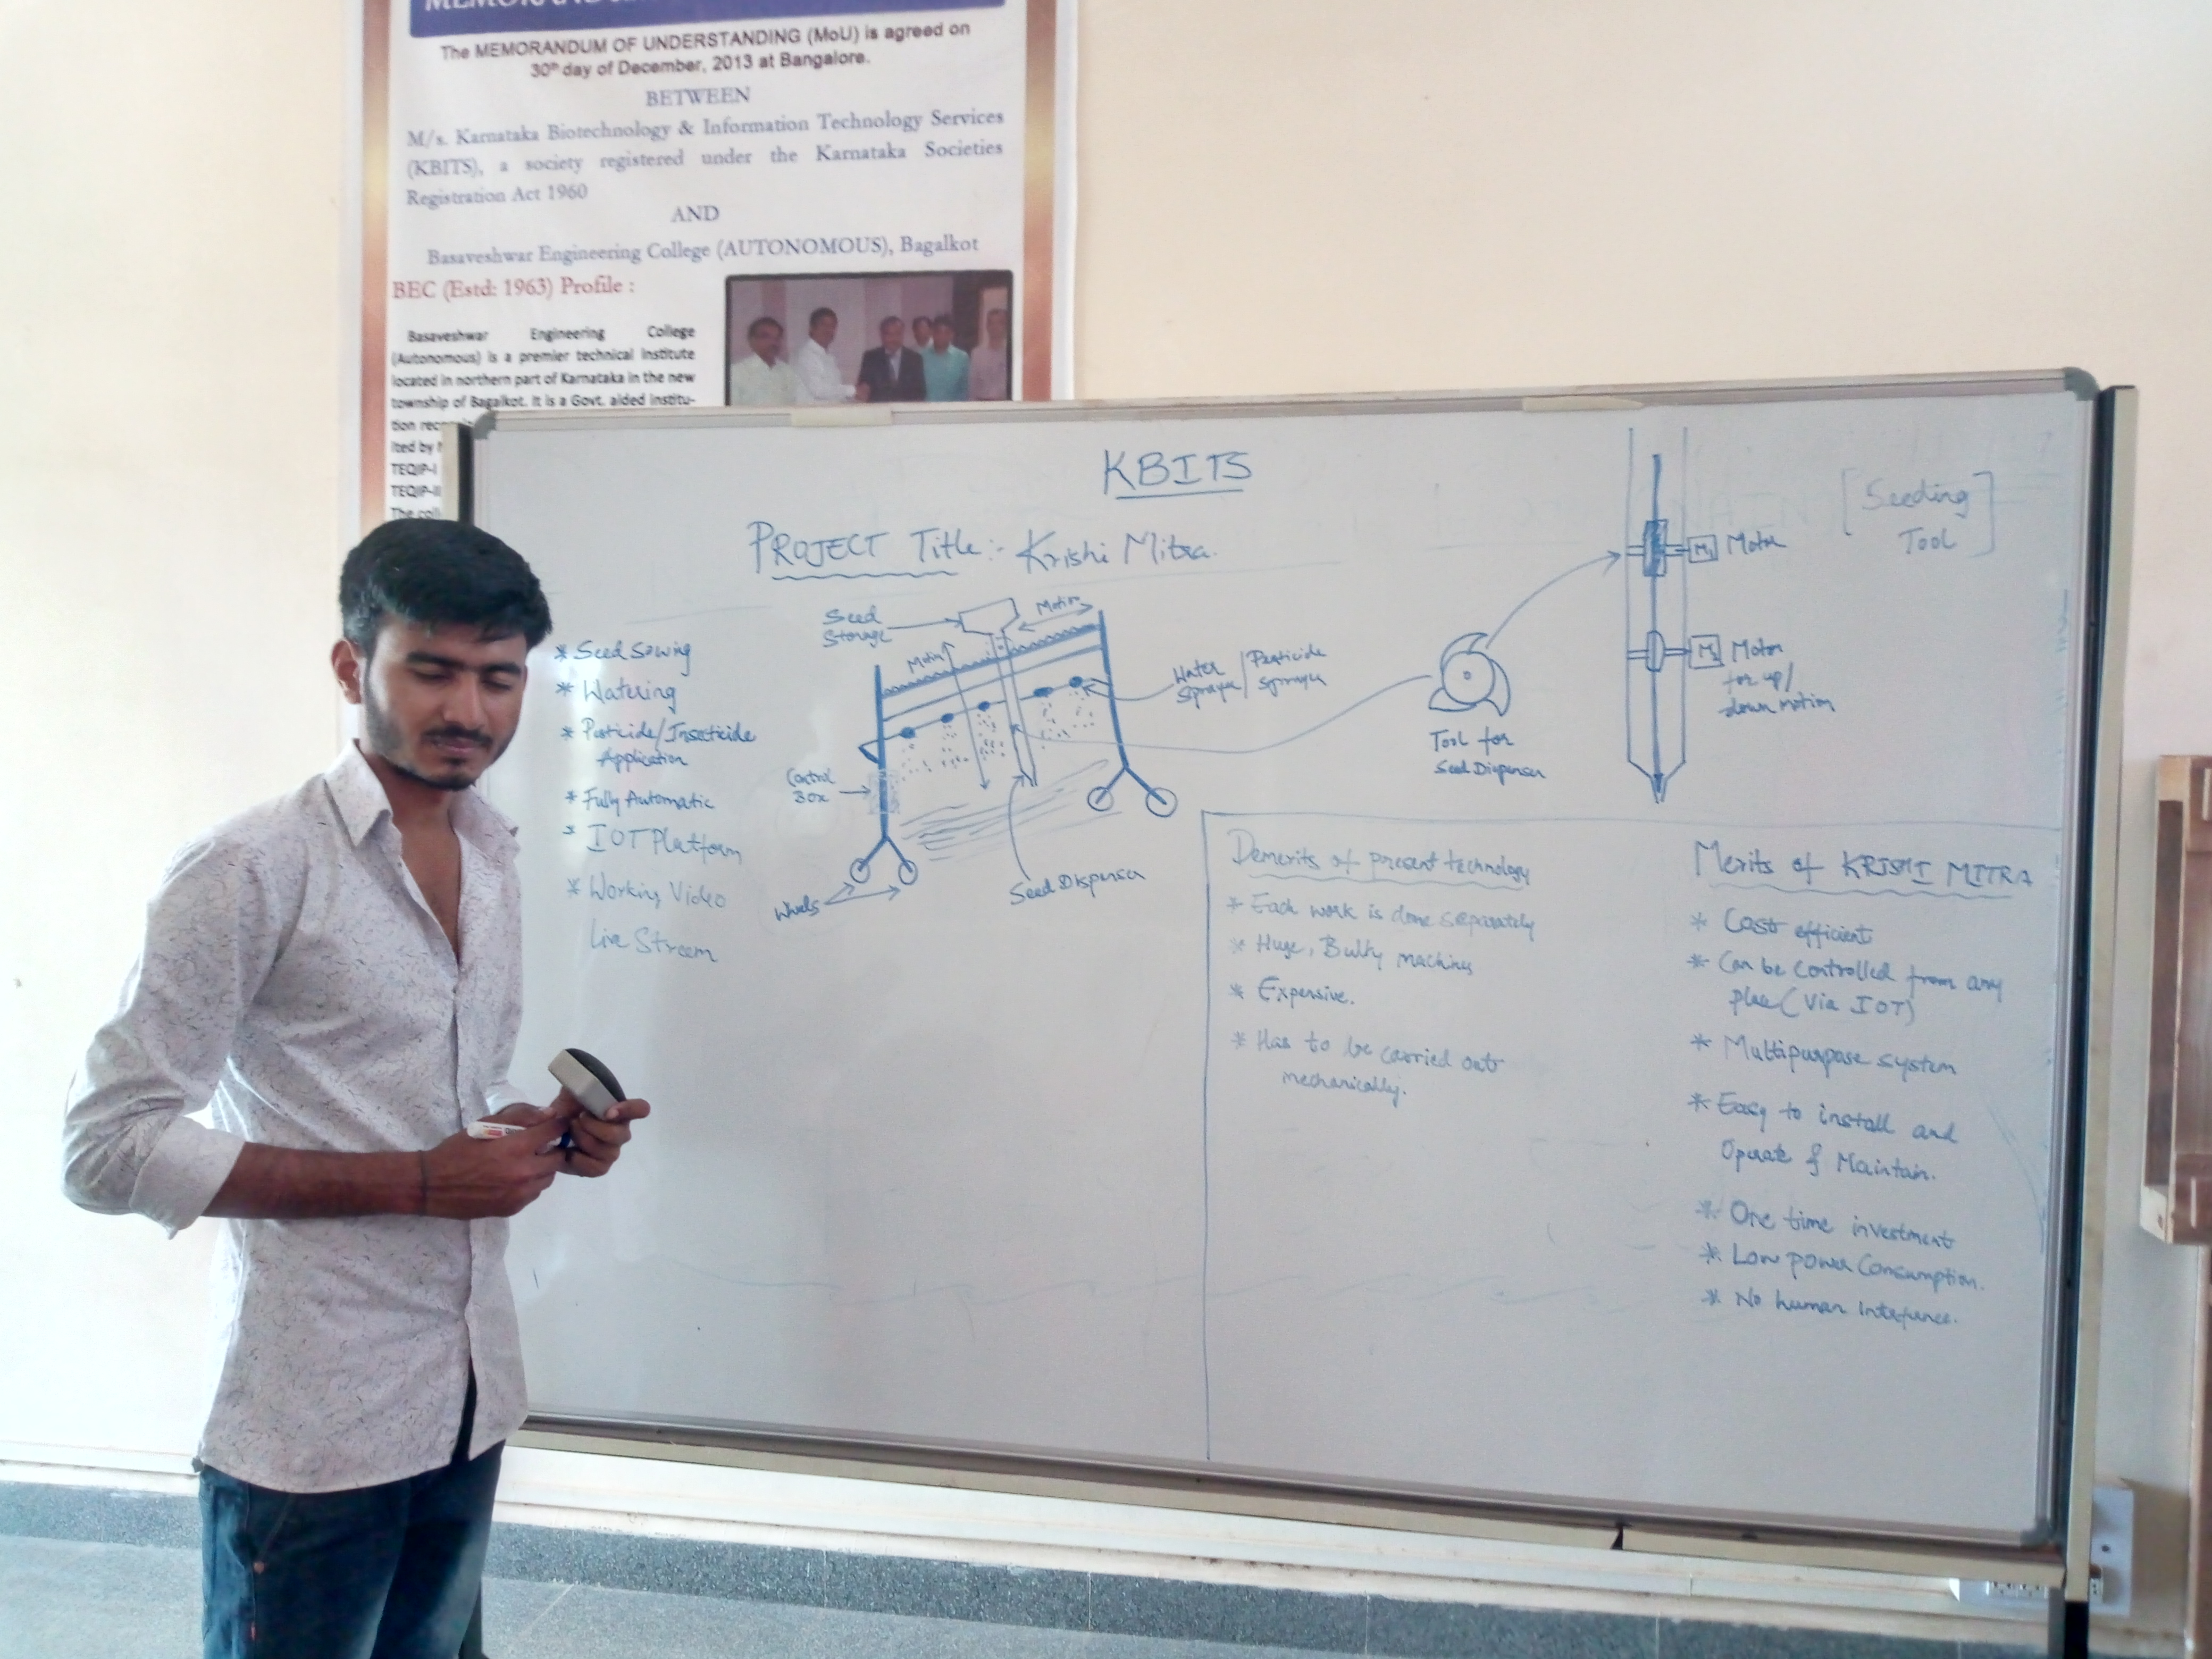 The MEMORANDUM OF UNDERSTANDING (MoU) is agreed on
30th day of December, 2013 at Bangalore.
BETWEEN
M/s. Karnataka Biotechnology & Information Technology Services
(KBITS), a society registered under the Karnataka Societies
Registration Act 1960
AND
Basaveshwar Engineering College (AUTONOMOUS), Bagalkot
BEC (Estd: 1963) Profile :
Basaveshwar Engineering College
(Autonomous) is a premier technical institute
located in northern part of Karnataka in the new
township of Bagalkot. It is a Govt. aided institu-
tion
ited by
TEQIP-I
TEQIP-II
The
KBITS
PROJECT Title :- Krishi Mitra.
* Seed Sowing
* Watering
* Pesticide/Insecticide
Application
* Fully Automatic
* IOT Platform
* Working Video
Live Stream
Seed
Storage
Motion
Motion
Water
Sprayer
/
Pesticide
Sprayer
Control
Box
Wheels
Seed Dispenser
Tool for
Seed Dispenser
M1 Motor
M2 Motor
for up/
down motion
[Seeding
Tool]
Demerits of present technology
* Each work is done separately
* Huge, Bulky machines
* Expensive.
* Has to be carried out
mechanically.
Merits of KRISHI MITRA
* Cost efficient
* Can be controlled from any
place (Via IOT)
* Multipurpose system
* Easy to install and
Operate & Maintain.
* One time investment
* Low power Consumption.
* No human Interfernce.